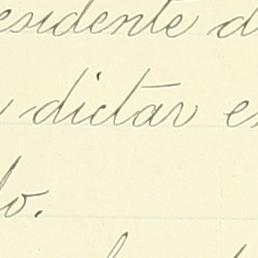 esidente d
dictar es
lo.